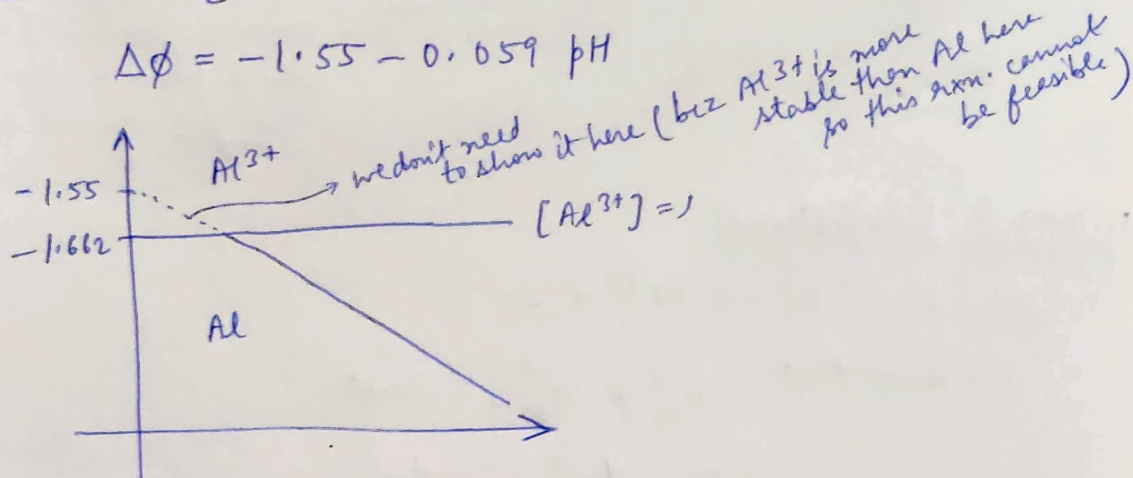 Δϕ = -1.55 - 0.059 pH
Al3+
we don't need
to show it here (bcz Al3+ is more
stable then Al here
so this rxn. cannot
be feasible)
-1.55
[Al3+] = 1
-1.662
Al